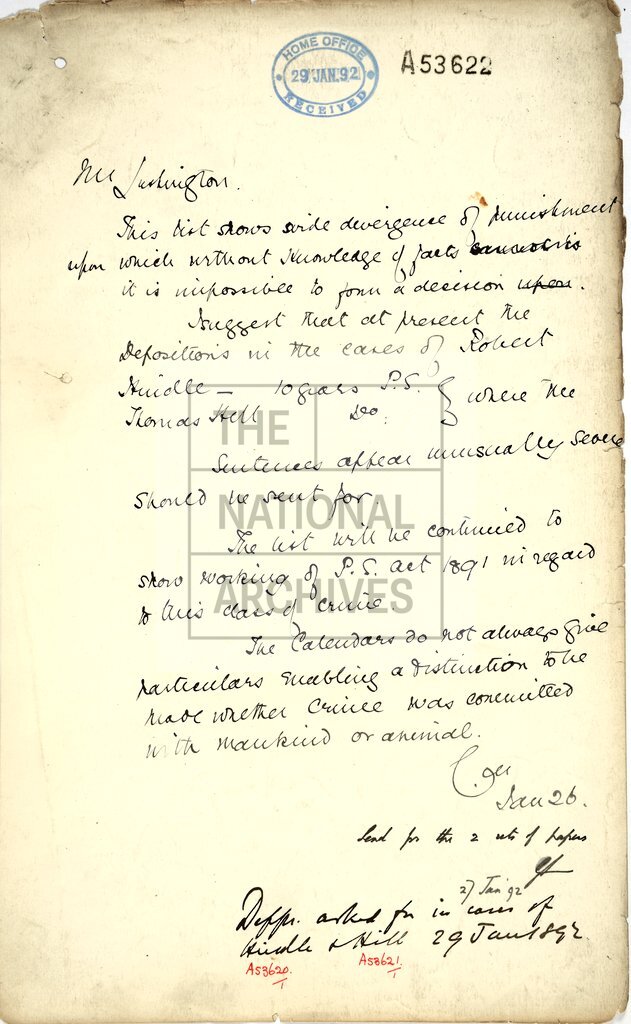 HOME OFFICE
29 JAN. 92
RECEIVED
A53622
Mr Lushington.
This list shows wide divergence of punishment
upon which without knowledge of facts
it is impossible to form a decision upon.
I suggest that at present the
Depositions in the cases of Robert
Hindle — 10 years P.S. } where the
Thomas Hill Do. 
Sentences appear unusually severe
should be sent for
The list will be continued to
show working of P.S. act 1891 in regard
to this class of crime.
The Calendars do not always give
particulars enabling a distinction to be
made whether crime was committed
with mankind or animal.
Jan 26.
Send for the 2 sets of papers
27 Jan 92
Depps. asked for in cases of
Hindle & Hill 29 Jan 1892.
A53620/1 A53621/1
THE
NATIONAL
ARCHIVES